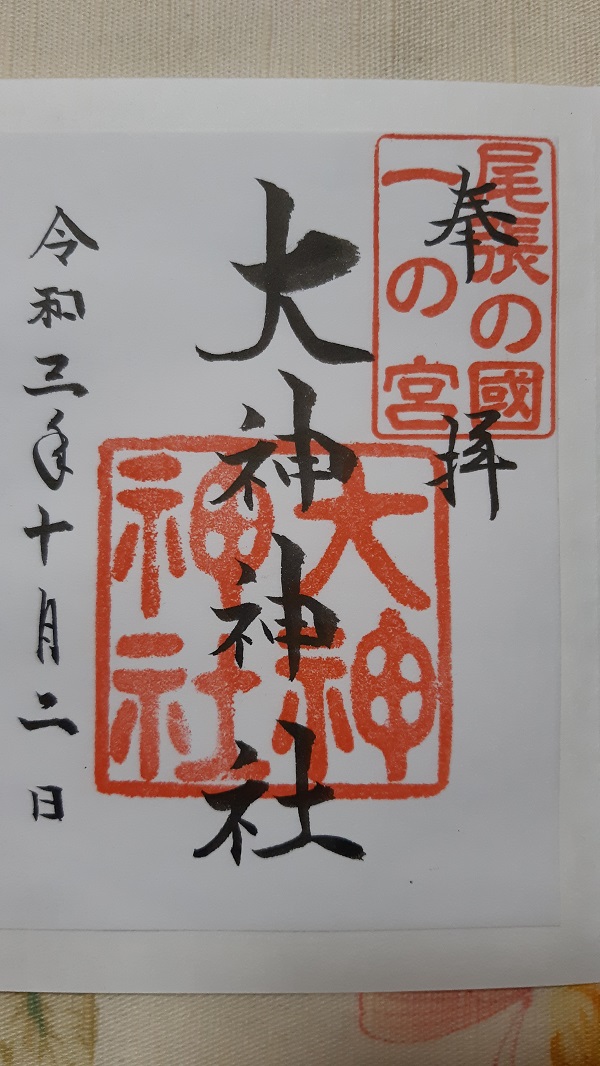 尾張の國
一の宮
奉拝
大神神社
大神
神社
令和三年十月二日